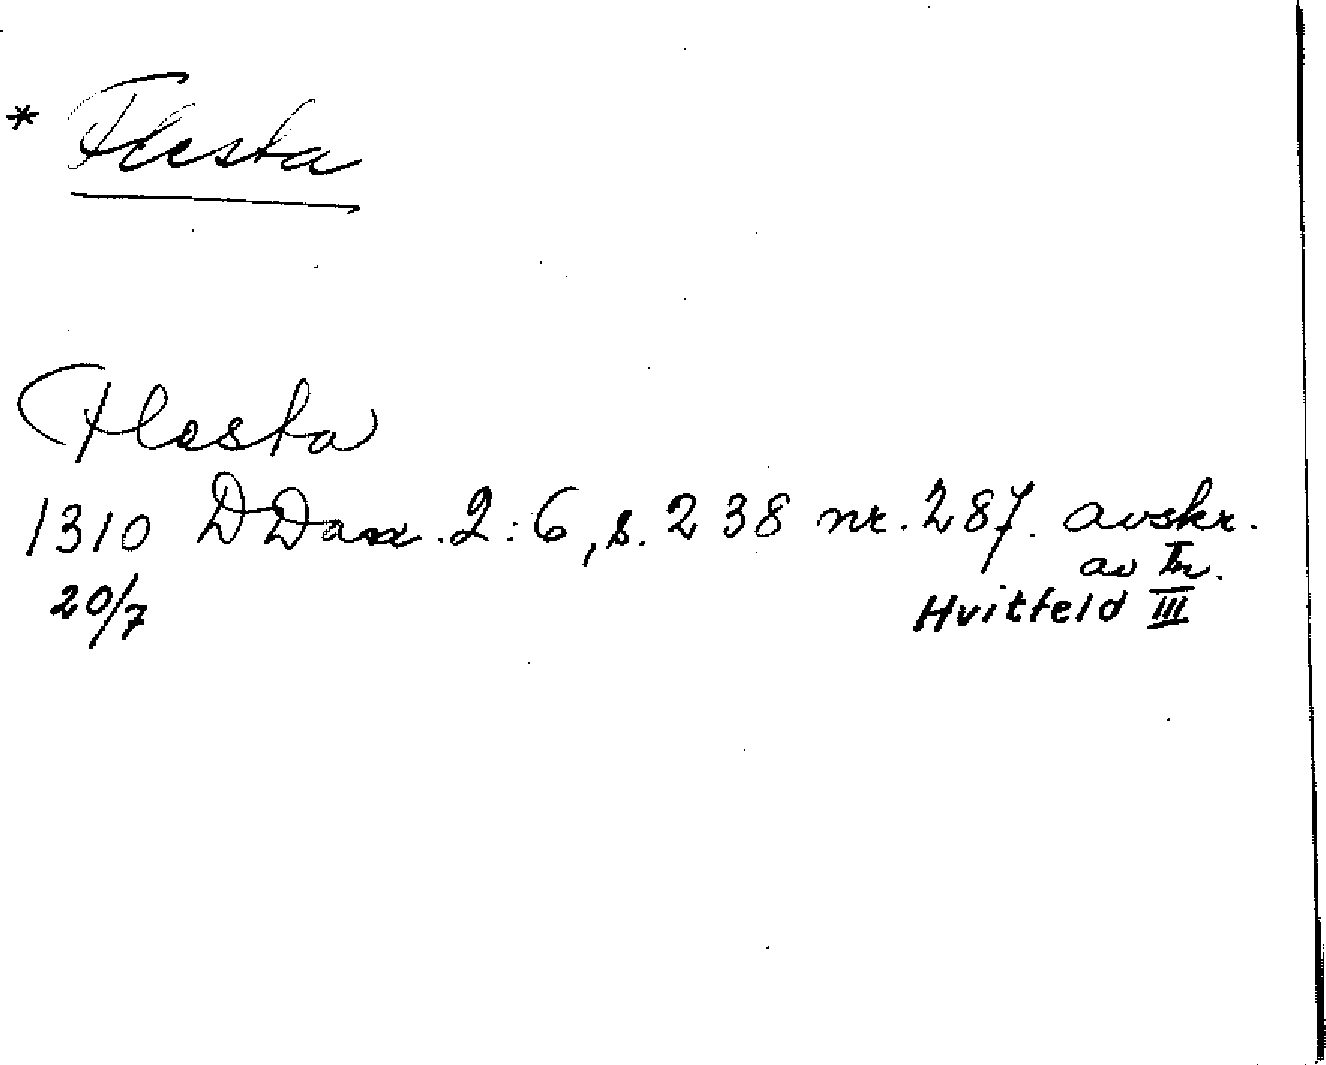 * Flesta
Flesta
1310 DDan. 2:6, s. 238 nr. 287. avskr.
20/7
av Tr.
Hvitfeld III